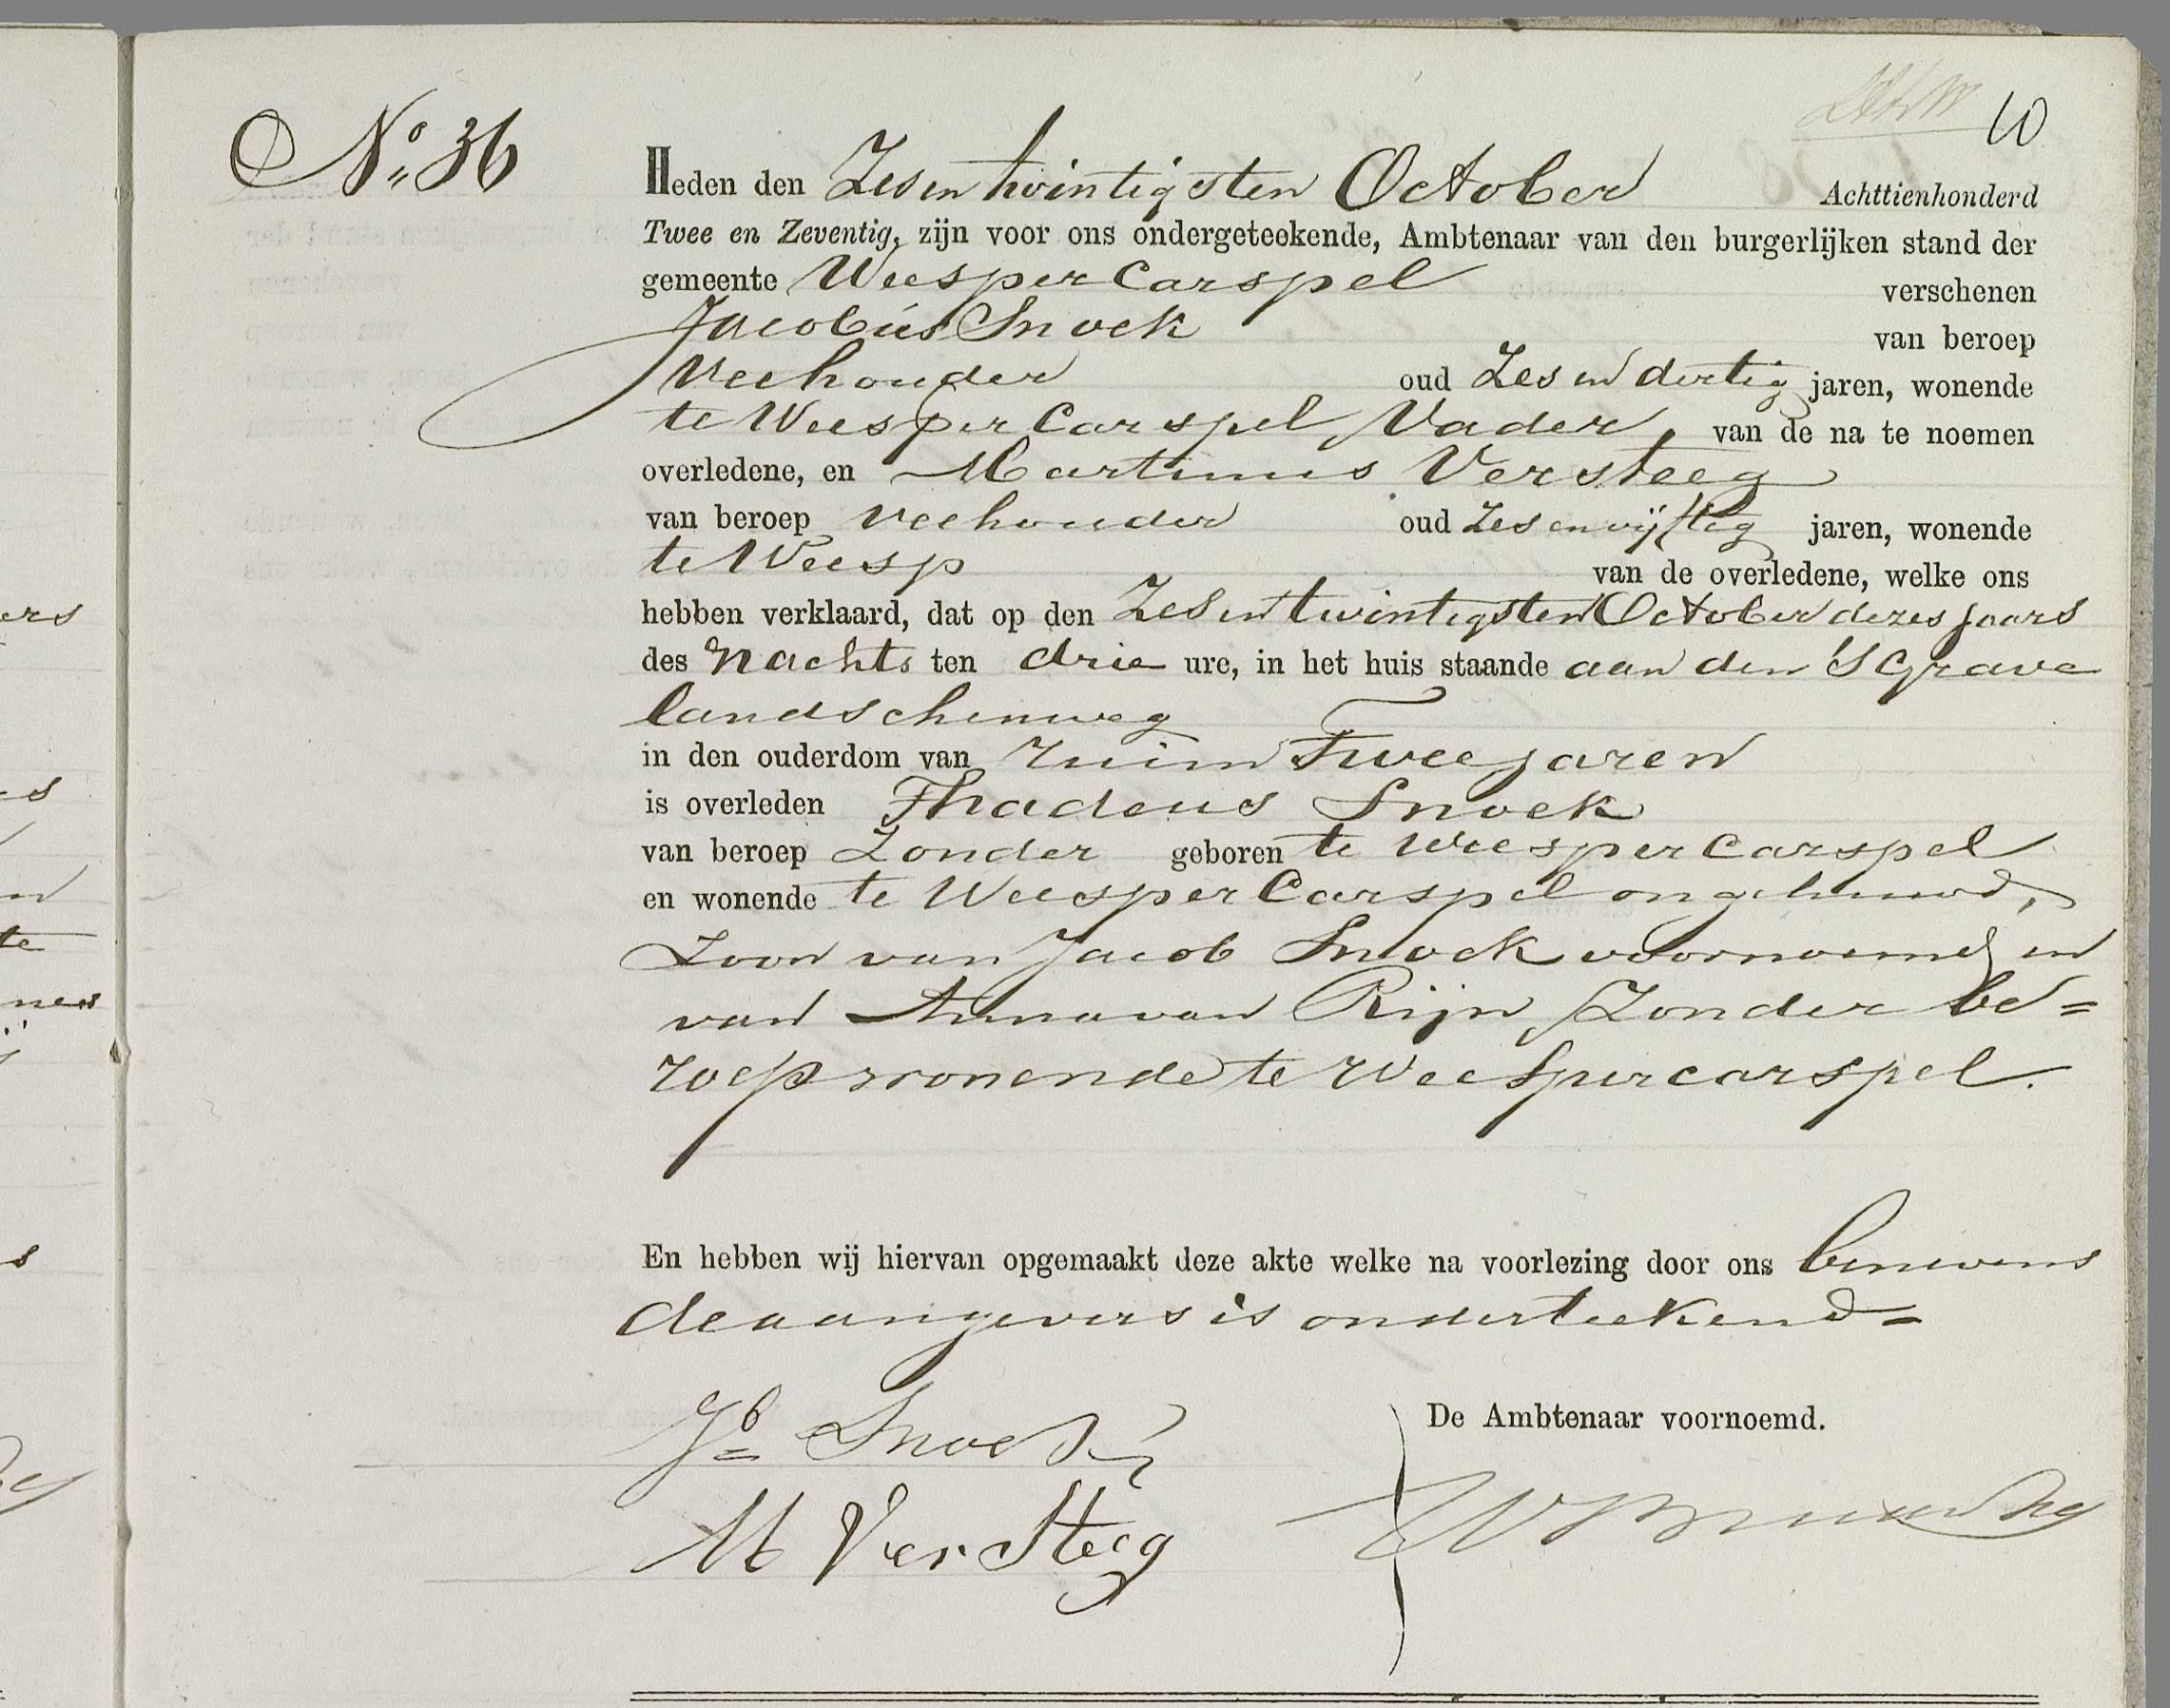 10
No. 36
Heden den Zesentwintigsten October Achttienhonderd
Twee en Zeventig, zijn voor ons ondergeteekende, Ambtenaar van den burgerlijken stand der
gemeente Weespercarspel verschenen
Jacobus Snoek van beroep
Veehouder oud Zesendertig jaren, wonende
te Weespercarspel, Vader, van de na te noemen
overledene, en Martinus Versteeg
van beroep veehouder oud Zesenvijftig jaren, wonende
te Weesp van de overledene, welke ons
hebben verklaard, dat op den Zesentwintigsten October dezes jaars
des Nachts ten drie ure, in het huis staande aan den 'SGrave
landschenweg
in den ouderdom van ruim Twee jaren
is overleden Thadeus Snoek
van beroep Zonder geboren te Weespercarspel
en wonende te Weespercarspel ongehuwd,
Zoon van Jacob Snoek voornoemd en
van Anna van Rijn, Zonder be=
roep wonende te Weespercarspel.
En hebben wij hiervan opgemaakt deze akte welke na voorlezing door ons benevens
de aangevers is onderteekend=
Jb Snoek
De Ambtenaar voornoemd.
M VerSteeg
ers
te
nes
s